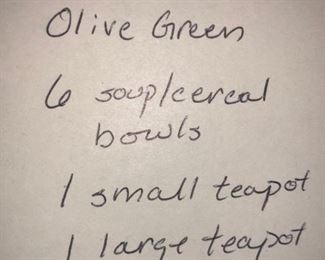 Olive Green
6 soup/cereal
bowls
1 small teapot
1 large teapot